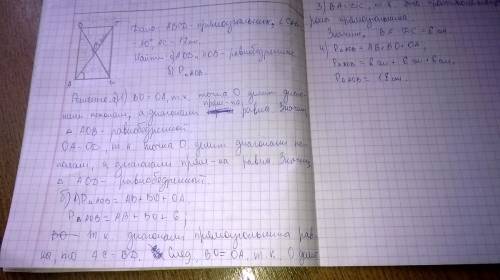 Дано: ABCD - прямоугольник, ∠CAB
AC = 12 см.
Найти: а) AOD, AOB - равнобедренные
б) P AOB.
Решение: а) 1) BO = OA, т.к. точка O делит диаго-
нали пополам, а диагонали прям-ка равны. Значит,
△ AOB - равнобедренный.
OA = OD, т.к. точка O делит диагонали по-
полам, а диагонали прям-ка равны. Значит,
△ AOD - равнобедренный.
б) 1) P AOB = AB + BO + OA.
P AOB = AB + BO + 6;
т.к. диагонали прямоугольника рав-
ны, то AC = BD. След. BO = OA, т.к. O делит
3) BA = DC, т.к. это
прямоугольника.
Значит, = 6 см
4) P AOB = AB + BO + OA,
P AOB = 6 см + 6 см + 6 см.
P AOB = 18 см.